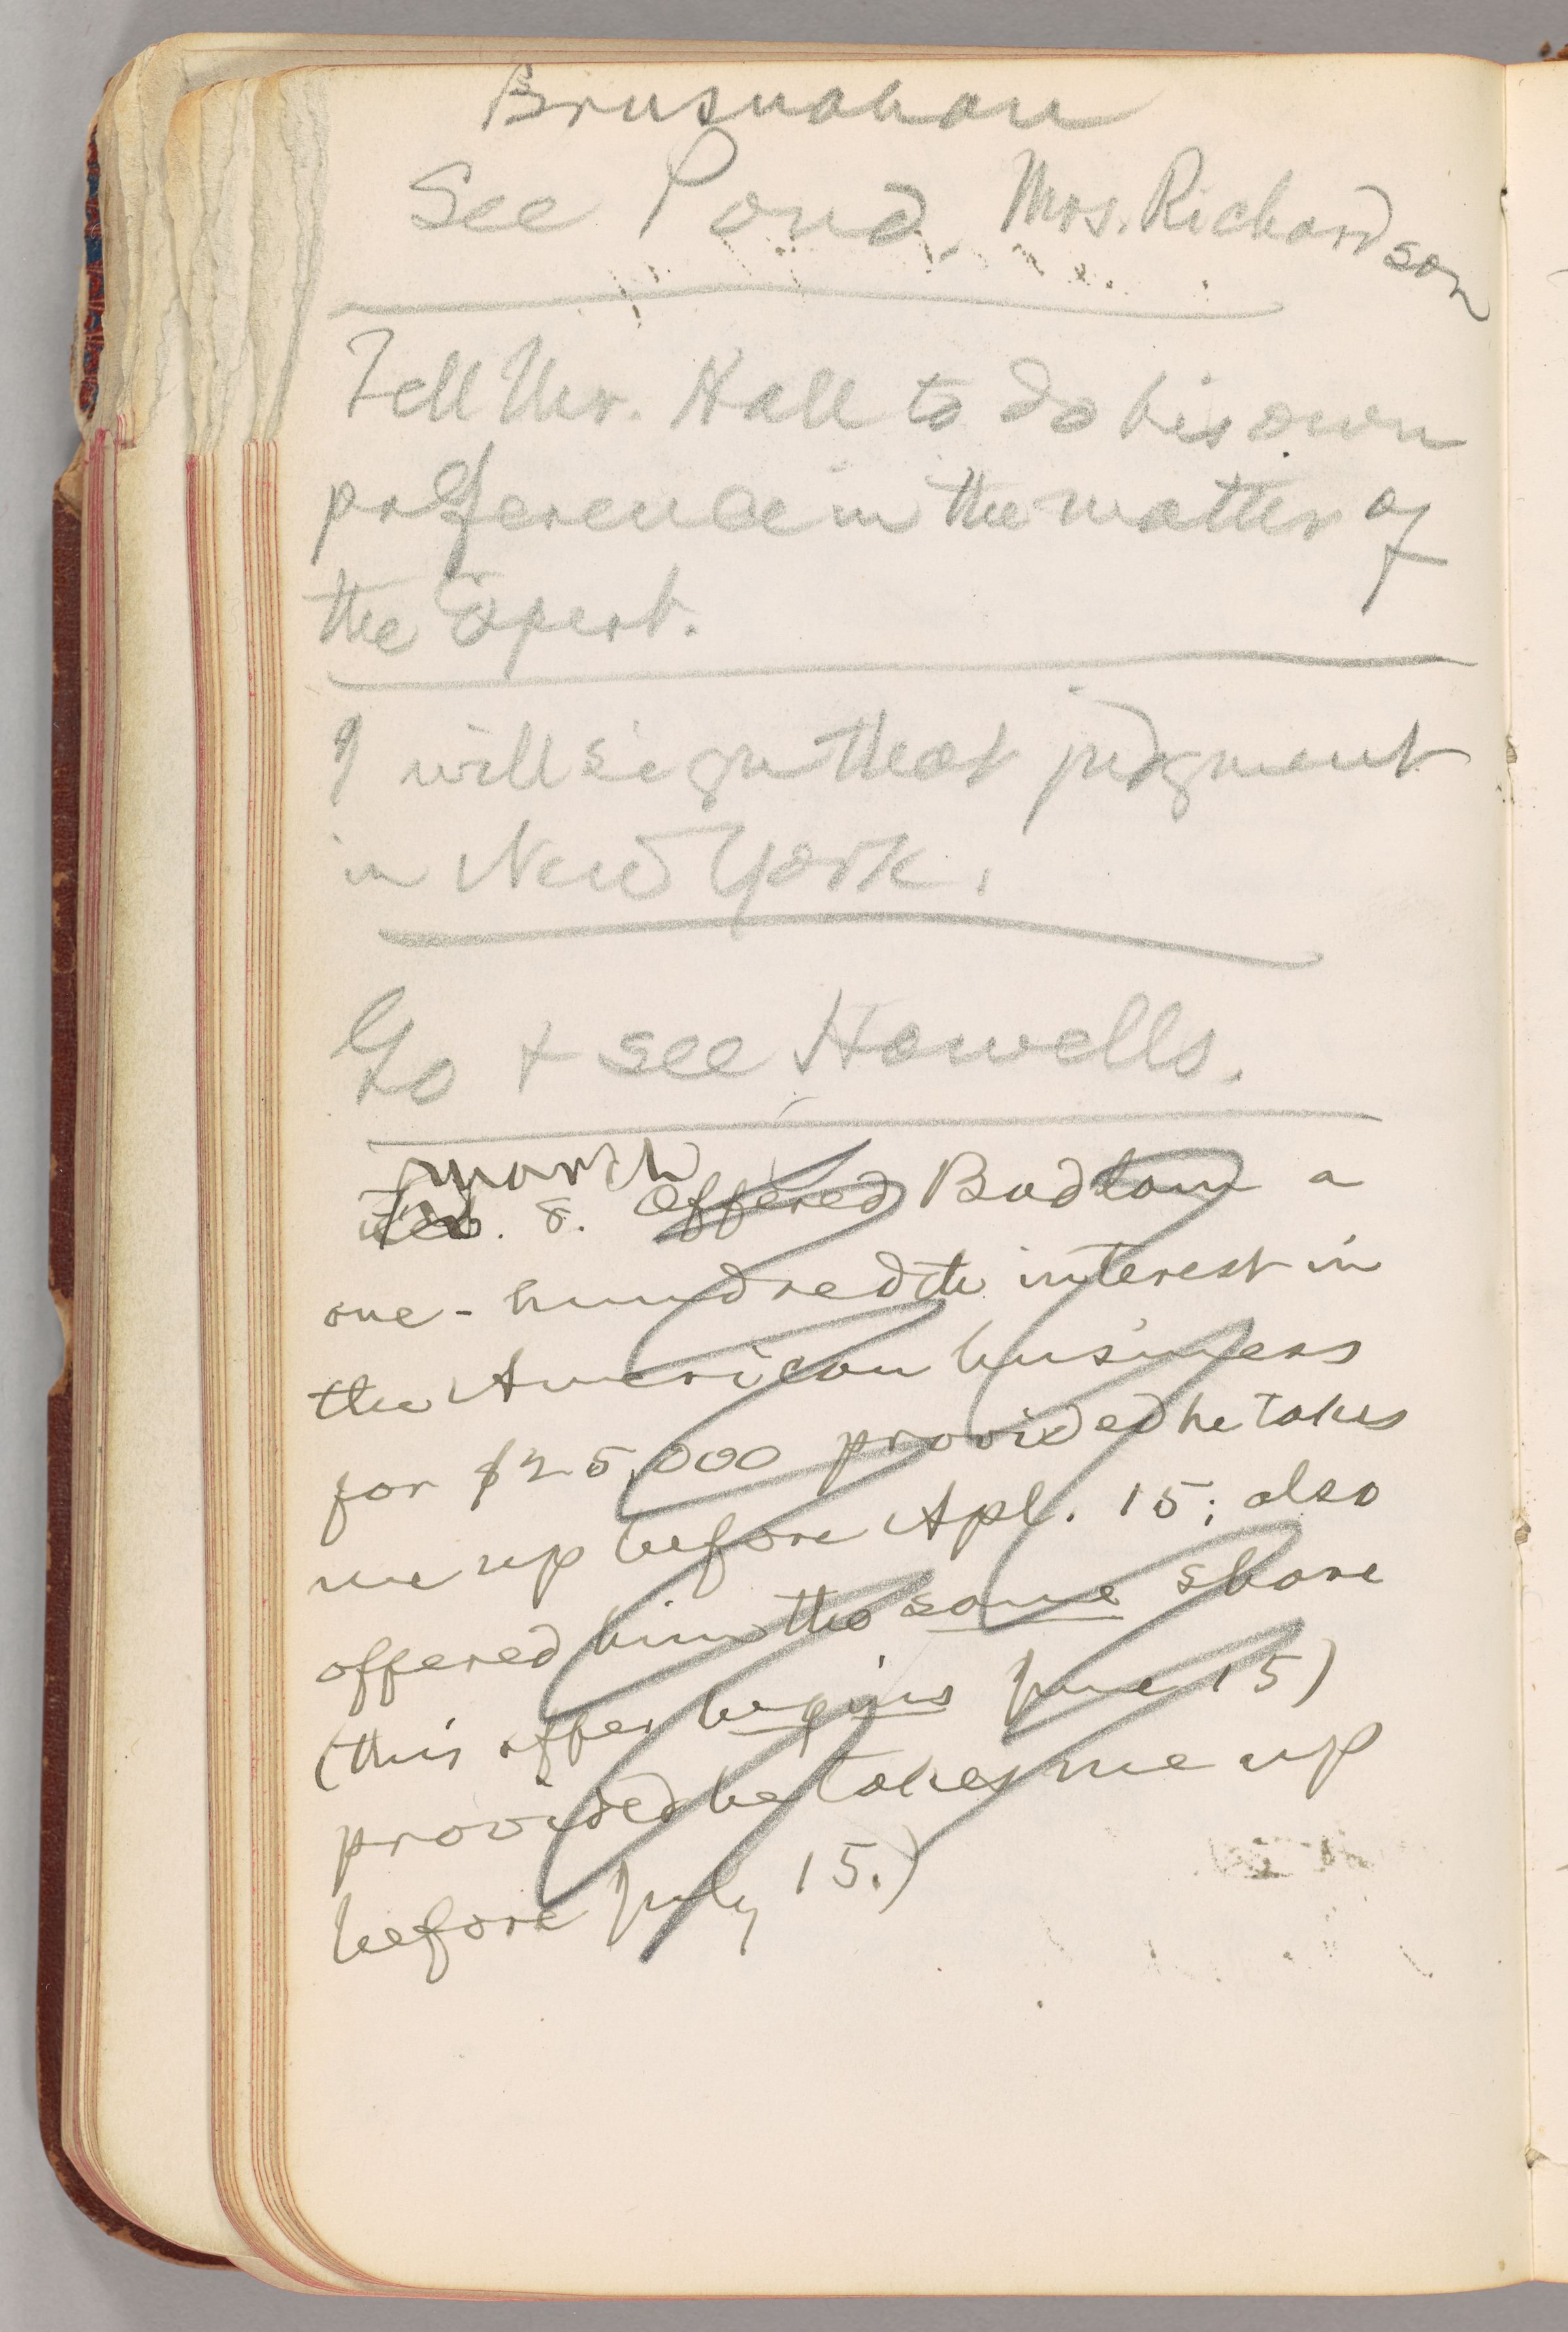 Brusnahan
See Pond. Mrs. Richardson
Tell Mr. Hall to do his own
preference in the matter of
the expert.
I will sign that judgment
in New York.
Go + see Howells.
March
Feb. 8. Offered Badlam a
one-hundredth interest in
the American business
for $25,000 provided he takes
me up before Apl. 15; also
offered him the same share
(this offer begins June 15)
provided he takes me up
before July 15.)